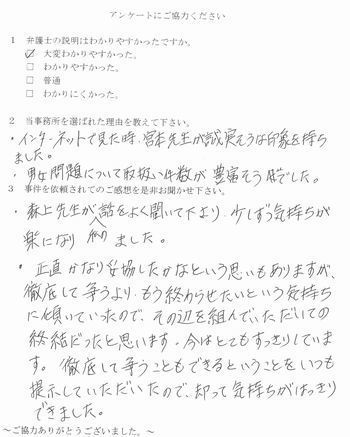 アンケートにご協力ください
1 弁護士の説明はわかりやすかったですか。
☑ 大変わかりやすかった。
□ わかりやすかった。
□ 普通
□ わかりにくかった。
2 当事務所を選ばれた理由を教えて下さい。
・インターネットで見た時、宮本先生が誠実そうな印象を持ち
ました。
・男女問題について取扱い件数が豊富そうでした。
3 事件を依頼されてのご感想を是非お聞かせ下さい。
・森上先生が話をよく聞いて下さり、少しずつ気持ちが
楽になり ました。
・正直かなり妥協したかなという思いもありますが、
徹底して争うより、もう終わらせたいという気持ち
に傾いていったので、その辺を組んでいただいての
終結だったと思います。今はとてもすっきりしていま
す。徹底して争うこともできるということをいつも
提示していただいたので、却って気持ちがはっきり
できました。
～ご協力ありがとうございました。～